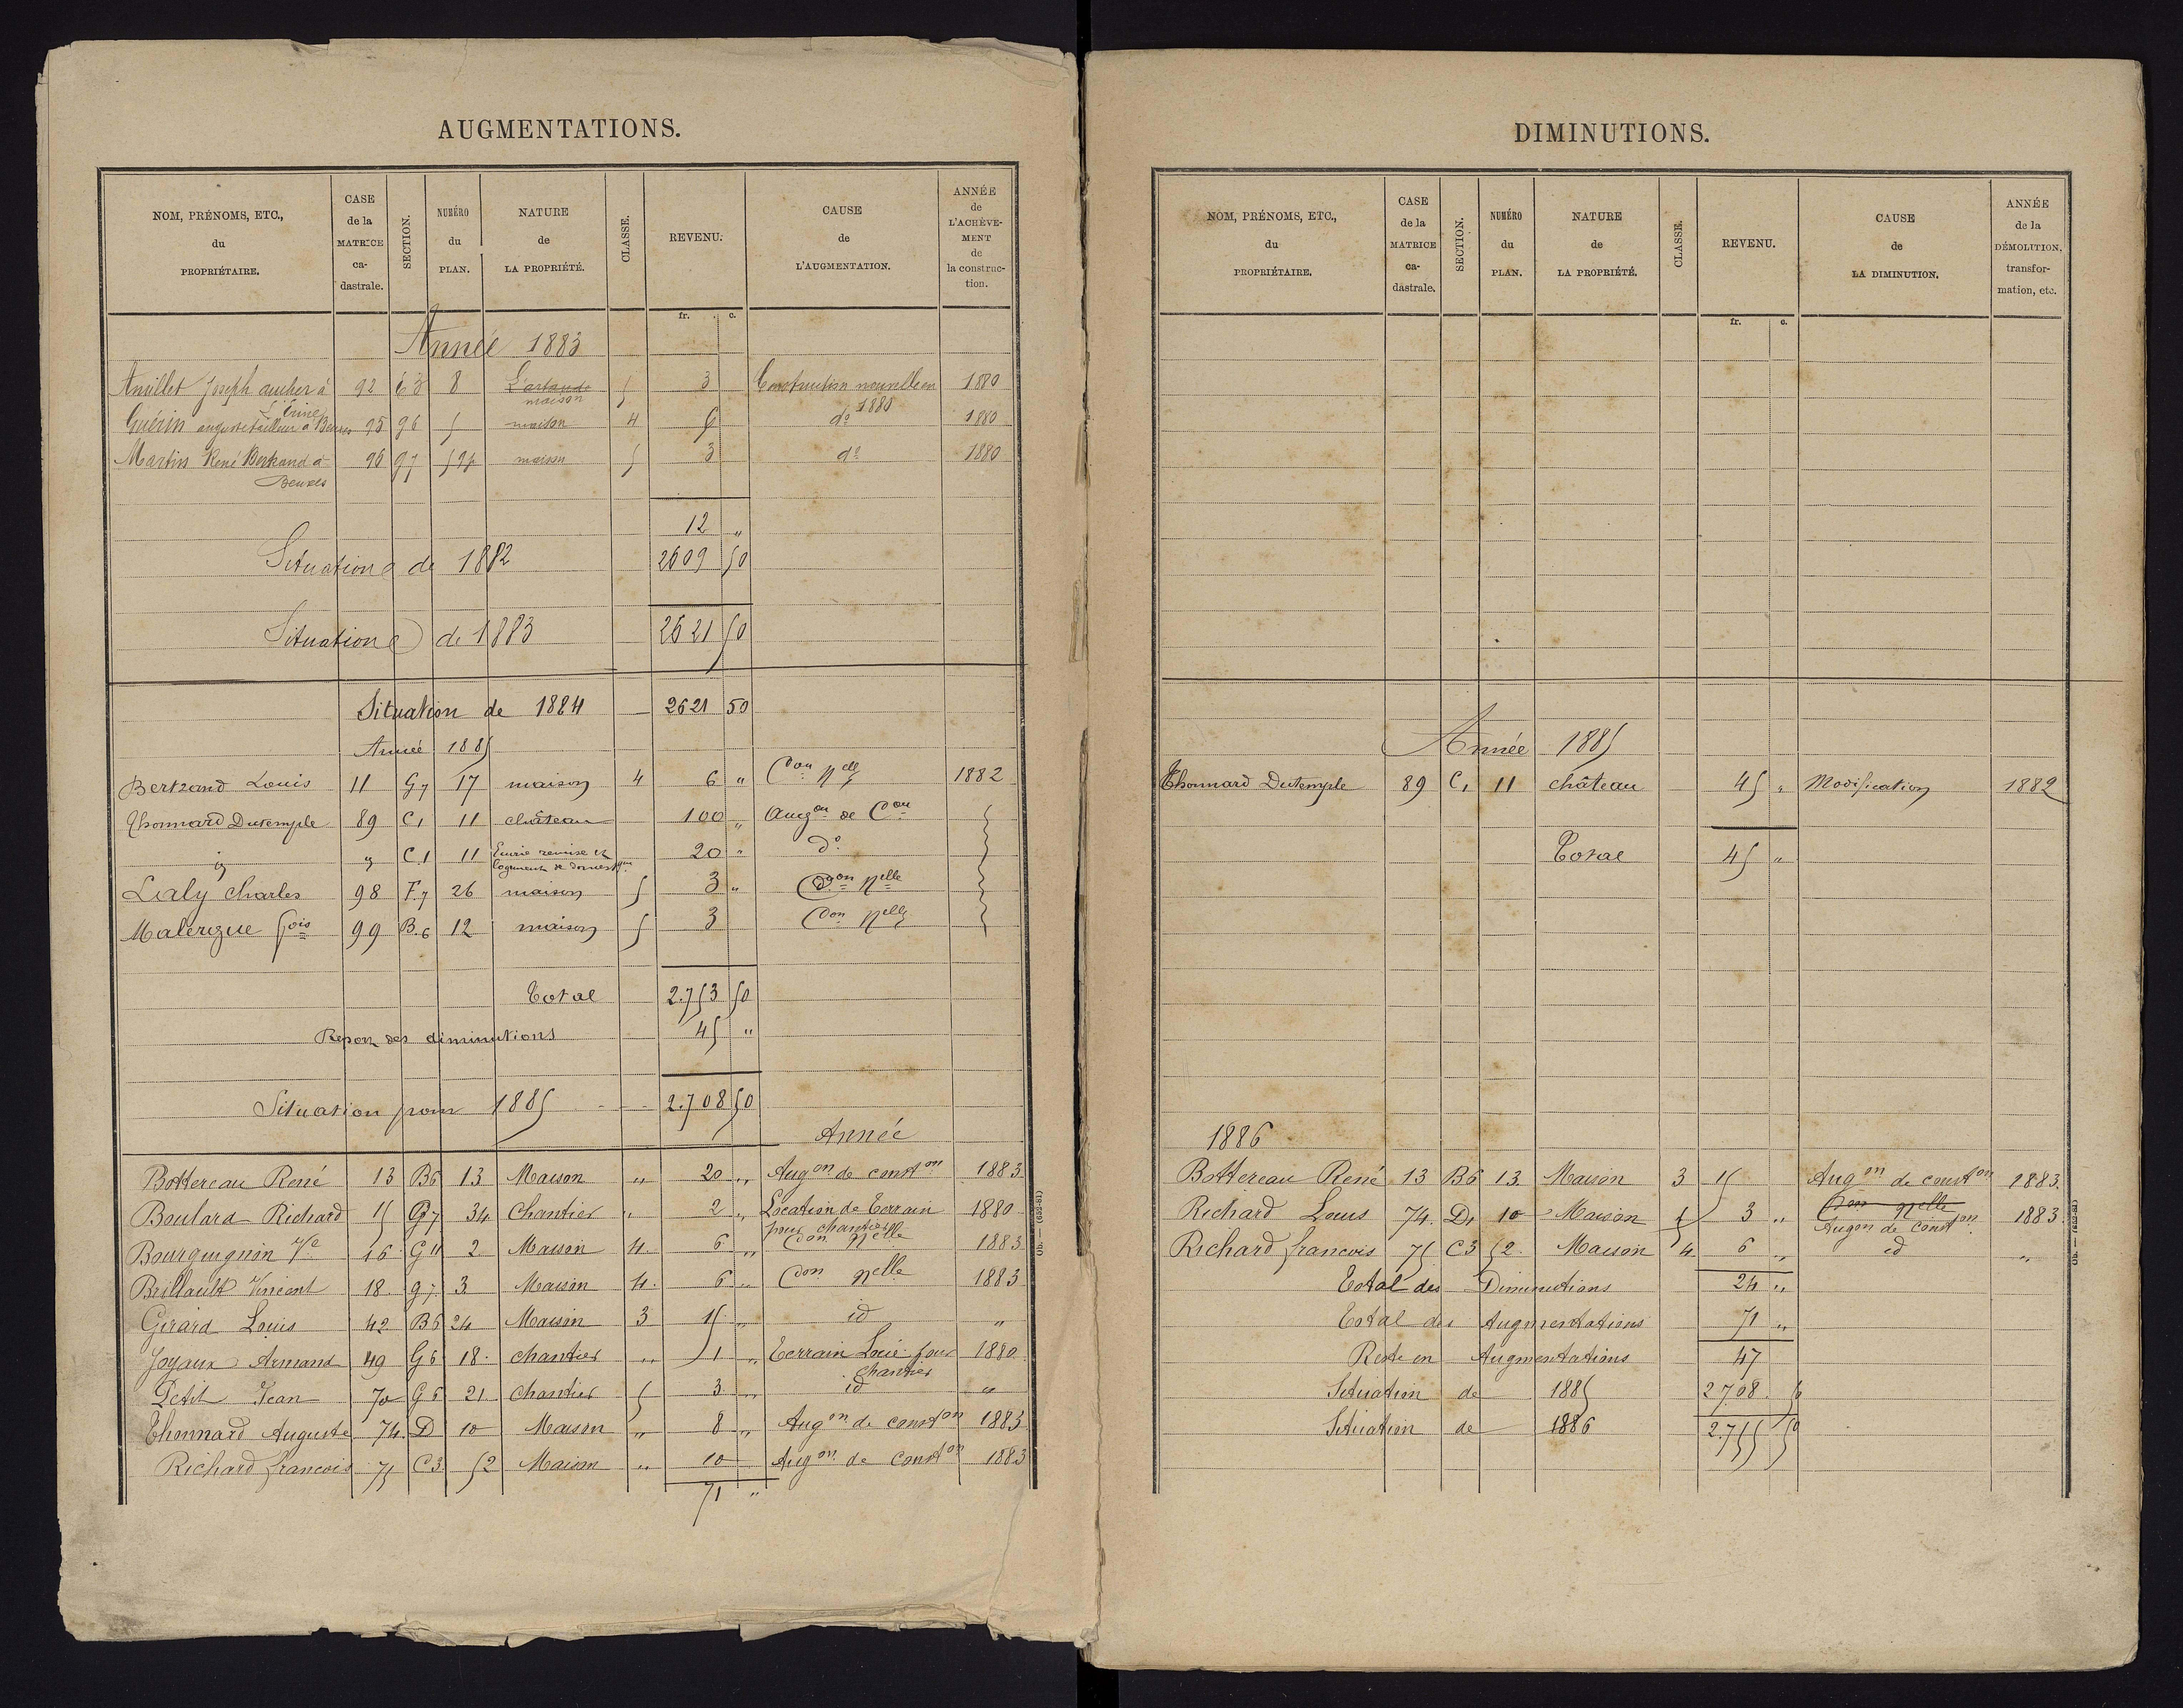 AUGMENTATIONS.
NOM, PRÉNOMS, ETC., du PROPRIÉTAIRE. CASE de la MATRICE ca- dastrale. SECTION. NUMÉRO du PLAN. NATURE de LA PROPRIÉTÉ. CLASSE. REVENU. CAUSE de L'AUGMENTATION. ANNÉE de L'ACHÈVE- MENT de la construc- tion.
fr. c.
Année 1883
Joseph à 92 8 maison 5 3 Construction nouvelle en 1880
1881
Guérin auguste tailleur à Beuxes 95 96 5 maison 4 6 do 1880
Martin René Bertrand à 96 97 594 maison 5 3 do 1880
Beuxes
12 "
Situation de 1882 2609 50
Situation de 1883 2621 50
Situation de 1884 2621 50
Année 1885
Bertrand Louis 11 G7 17 maison 4 6 " Con nelle 1882
Thonnard Dutemple 89 C1 11 château 100 " Augon de Con "
id " C1 11 Ecurie remise et 20 " do "
logement de domestique
Laly Charles 98 F7 26 maison 5 3 " Con nelle "
Malerque fois 99 B.6 12 maison 5 3 Con nelle "
Total 2.753 50
Report des diminutions 45 "
Situation pour 1885 2.708 50
Année
Bottereau René 13 B6 13 Maison " 20 " Augon de conston 1883
Boulard Richard 15 G7 34 Chantier " 2 " Location de Terrain 1880
pour chantier
Bourguignon Ve 16 G11 2 Maison 4 6 " Con nelle 1883
Brillault Vincent 18 g7 3 Maison 4. 6 " Con nelle 1883
Girard Louis 42 B6 24 Maison 3 15 " id "
Joyaux Armand 49 G6 18. chantier " 1 " Terrain Loué pour 1880
chantier
Petit Jean 70 G5 21 chantier 5 3 " id "
Thonnard Auguste 74. D 10 Maison " 8 " Augon de conston 1883
Richard francois 75 C3 52 Maison " 10 Augon de conston 1883
71 "
Ob. — (682-81)
DIMINUTIONS.
NOM, PRÉNOMS, ETC., du PROPRIÉTAIRE. CASE de la MATRICE ca- dastrale. SECTION. NUMÉRO du PLAN. NATURE de LA PROPRIÉTÉ. CLASSE. REVENU. CAUSE de LA DIMINUTION. ANNÉE de la DÉMOLITION, transfor- mation, etc.
fr. c.
Année 1885
Thonnard Dutemple 89 C1 11 château 45 " Modification 1882
Total 45 "
1886
Bottereau René 13 B6 13 Maison 3 15 Augon de conston 1883.
Richard Louis 74. D1 10 Maison 5 3 " Con nelle 1883.
Augon de conston
Richard francois 75 C3 52. Maison 4 6 " id "
Total des Diminutions 24 "
Total des Augmentations 71 "
Reste en Augmentations 47
Situation de 1885 2708. 50
Situation de 1886 2.755 50
Ob. — (682-81)